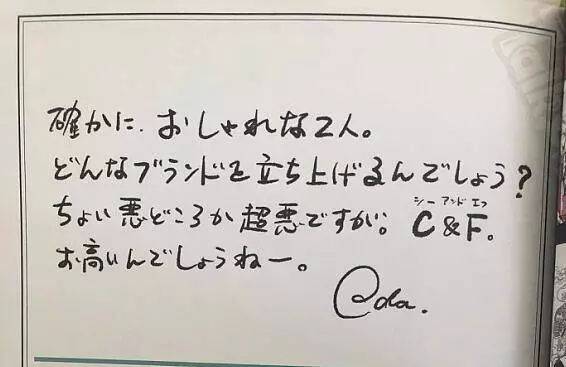 確かに、おしゃれな2人。
どんなブランドを立ち上げるんでしょう？
ちょい悪どころか超悪ですが。C&F。
シーアンドエフ
お高いんでしょうねー。
Oda.